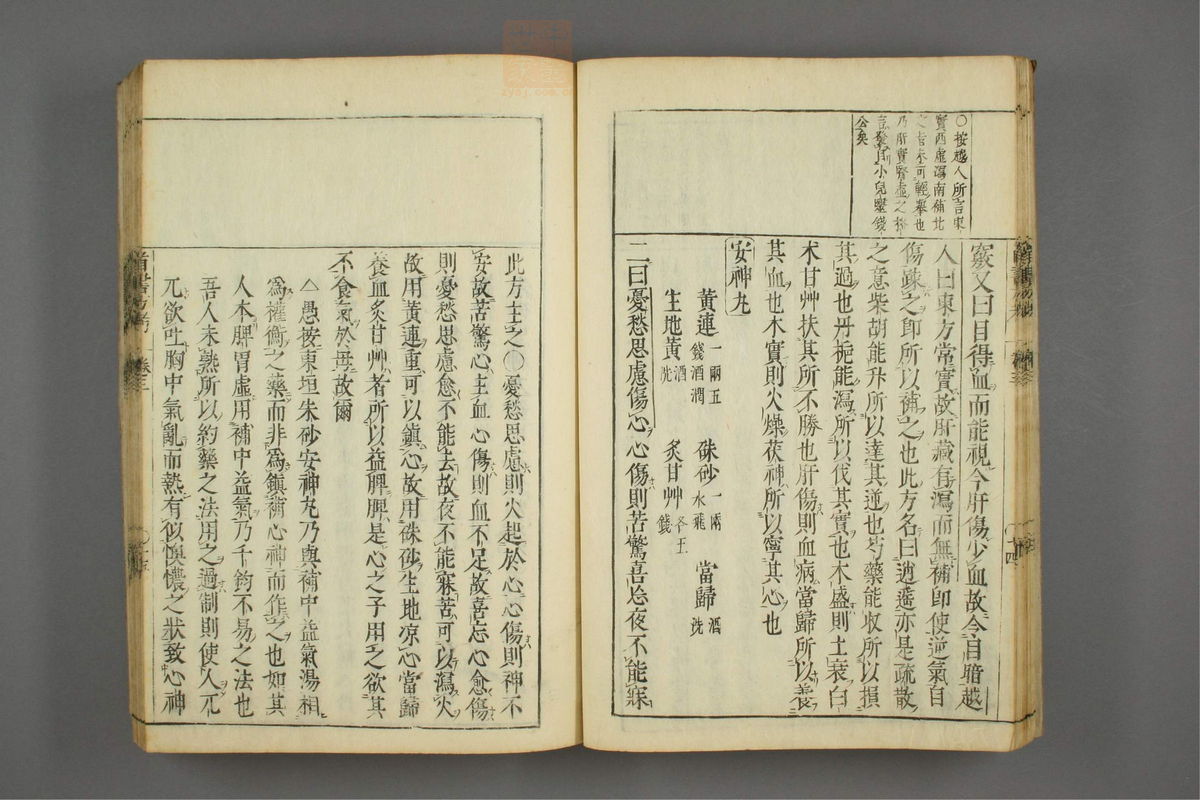 ○按越人所言東
實西虛瀉南補北
之旨未可輕舉也
乃肝實腎虛之
言發自小兒醫錢
公矣
竅又曰目得血而能視今肝傷少血故令目暗越
人曰東方常實故肝藏有瀉而無補即使逆氣自
傷疎之即所以補之也此方名曰逍遙亦是疏散
之意柴胡能升所以達其逆也芍藥能收所以損
其過也丹梔能瀉所以伐其實也木盛則土衰白
术甘艸扶其所不勝也肝傷則血病當歸所以養
其血也木實則火燥茯神所以寧其心也
安神丸
黃連一兩五錢酒潤 硃砂一兩水飛 當歸酒洗
生地黃酒洗 炙甘艸各五錢
二曰憂愁思慮傷心心傷則苦驚喜忘夜不能寐
此方主之○憂愁思慮則火起於心心傷則神不
安故苦驚心主血心傷則血不足故喜忘心愈傷
則憂愁思慮愈不能去故夜不能寐苦可以瀉火
故用黃連重可以鎮心故用硃砂生地涼心當歸
養血炙甘艸者所以益脾脾是心之子用之欲其
不食氣於母故爾
△愚按東垣朱砂安神丸乃與補中益氣湯相
為權衡之藥而非為鎮補心神而作之也如其
人本脾胃虛用補中益氣乃千鈞不易之法也
吾人未熟所以約藥之法用之過制則使人兀
兀欲吐胸中氣亂而熱有似懊憹之狀致心神
卷三